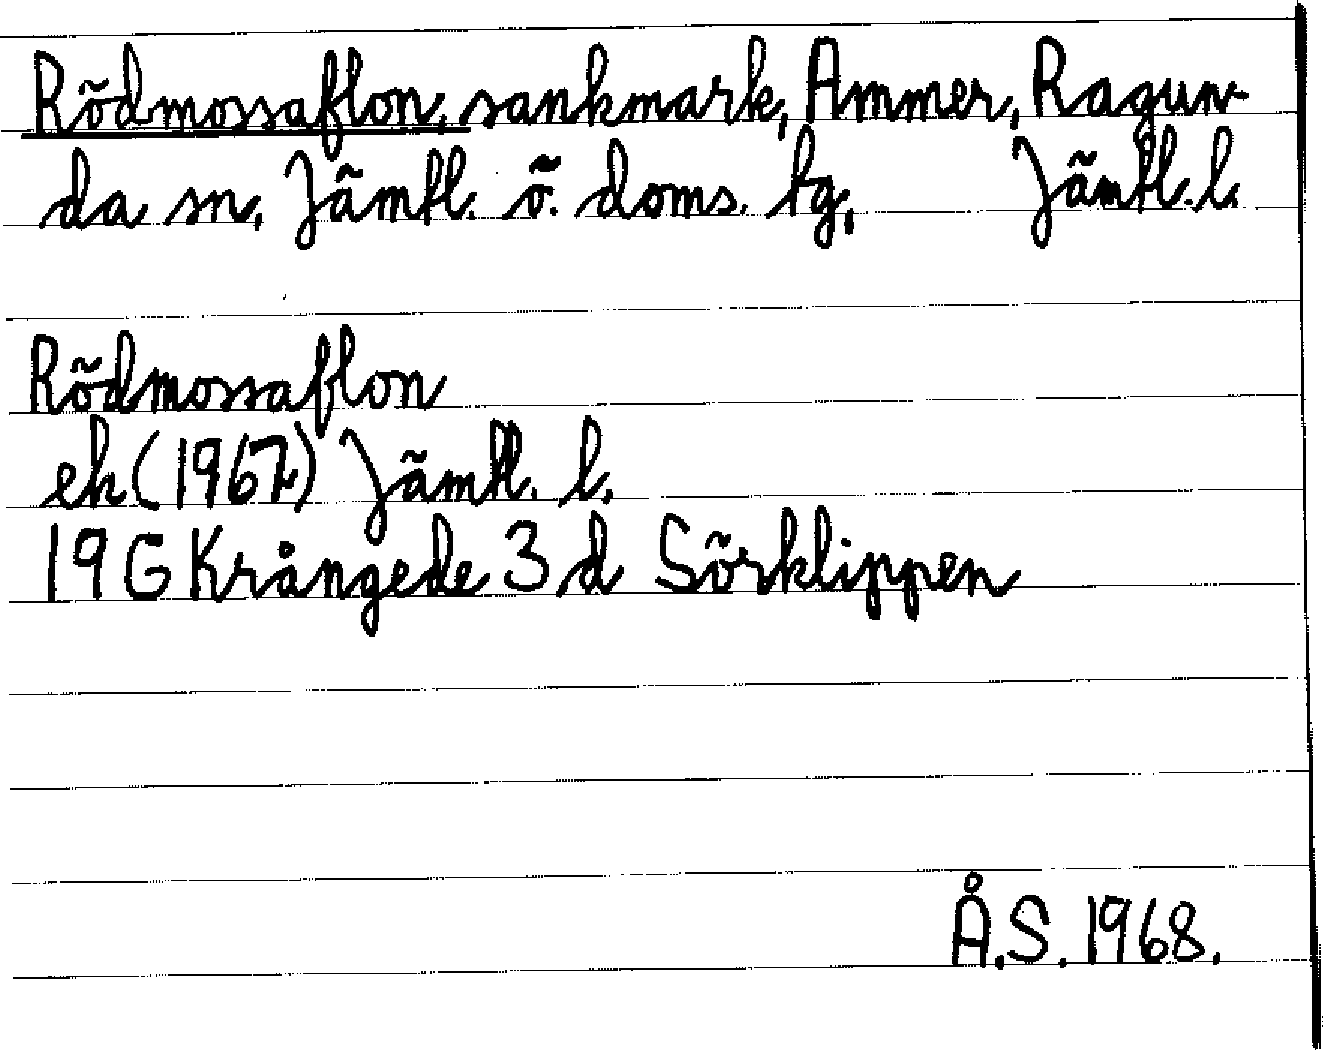 Rödmossaflon, sankmark, Ammer, Ragun-
da sn, Jämtl. ö. doms. tg, Jämtl. l.
Rödmossaflon
ek (1967) Jämtl. l.
19 G Krångede 3 d Sörklippen
Å.S. 1968.